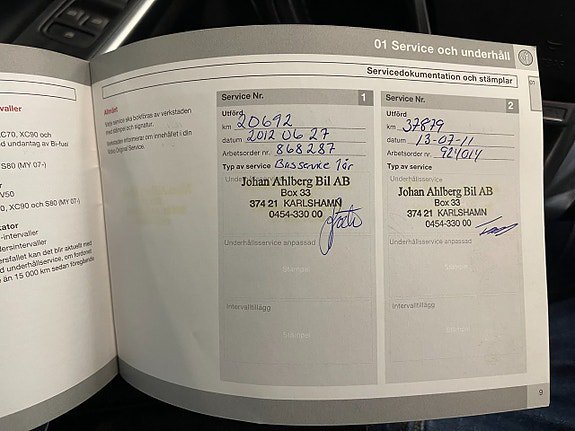 valler
C70, XC90 och
undantag av Bi-fuel
S80 (MY 07-)
V50
0, XC90 och S80 (MY 07-)
kator
-intervaller
dersintervaller
ersfallet kan det blir aktuellt med
d underhållservice, om fordonet
än 15 000 km sedan föregående
01 Service och underhåll
Servicedokumentation och stämplar
01
Allmänt
Varje service ska bokföras av verkstaden
med stämpel och signatur.
Verkstaden informerar om innehållet i din
Volvo Original Service.
Service Nr. 1
Utförd
km 20692
datum 2012 06 27
Arbetsorder nr. 868287
Typ av service Basservice 1år
Underhållsservice
Johan Ahlberg Bil AB
Box 33
374 21 KARLSHAMN
0454-330 00
Underhållsservice anpassad
Stämpel
Intervalltillägg
Stämpel
Service Nr. 2
Utförd
km 37879
datum 13-07-11
Arbetsorder nr. 924014
Typ av service
Underhållsservice
Johan Ahlberg Bil AB
Box 33
374 21 KARLSHAMN
0454-330 00
Underhållsservice anpassad
Stämpel
Intervalltillägg
Stämpel
9